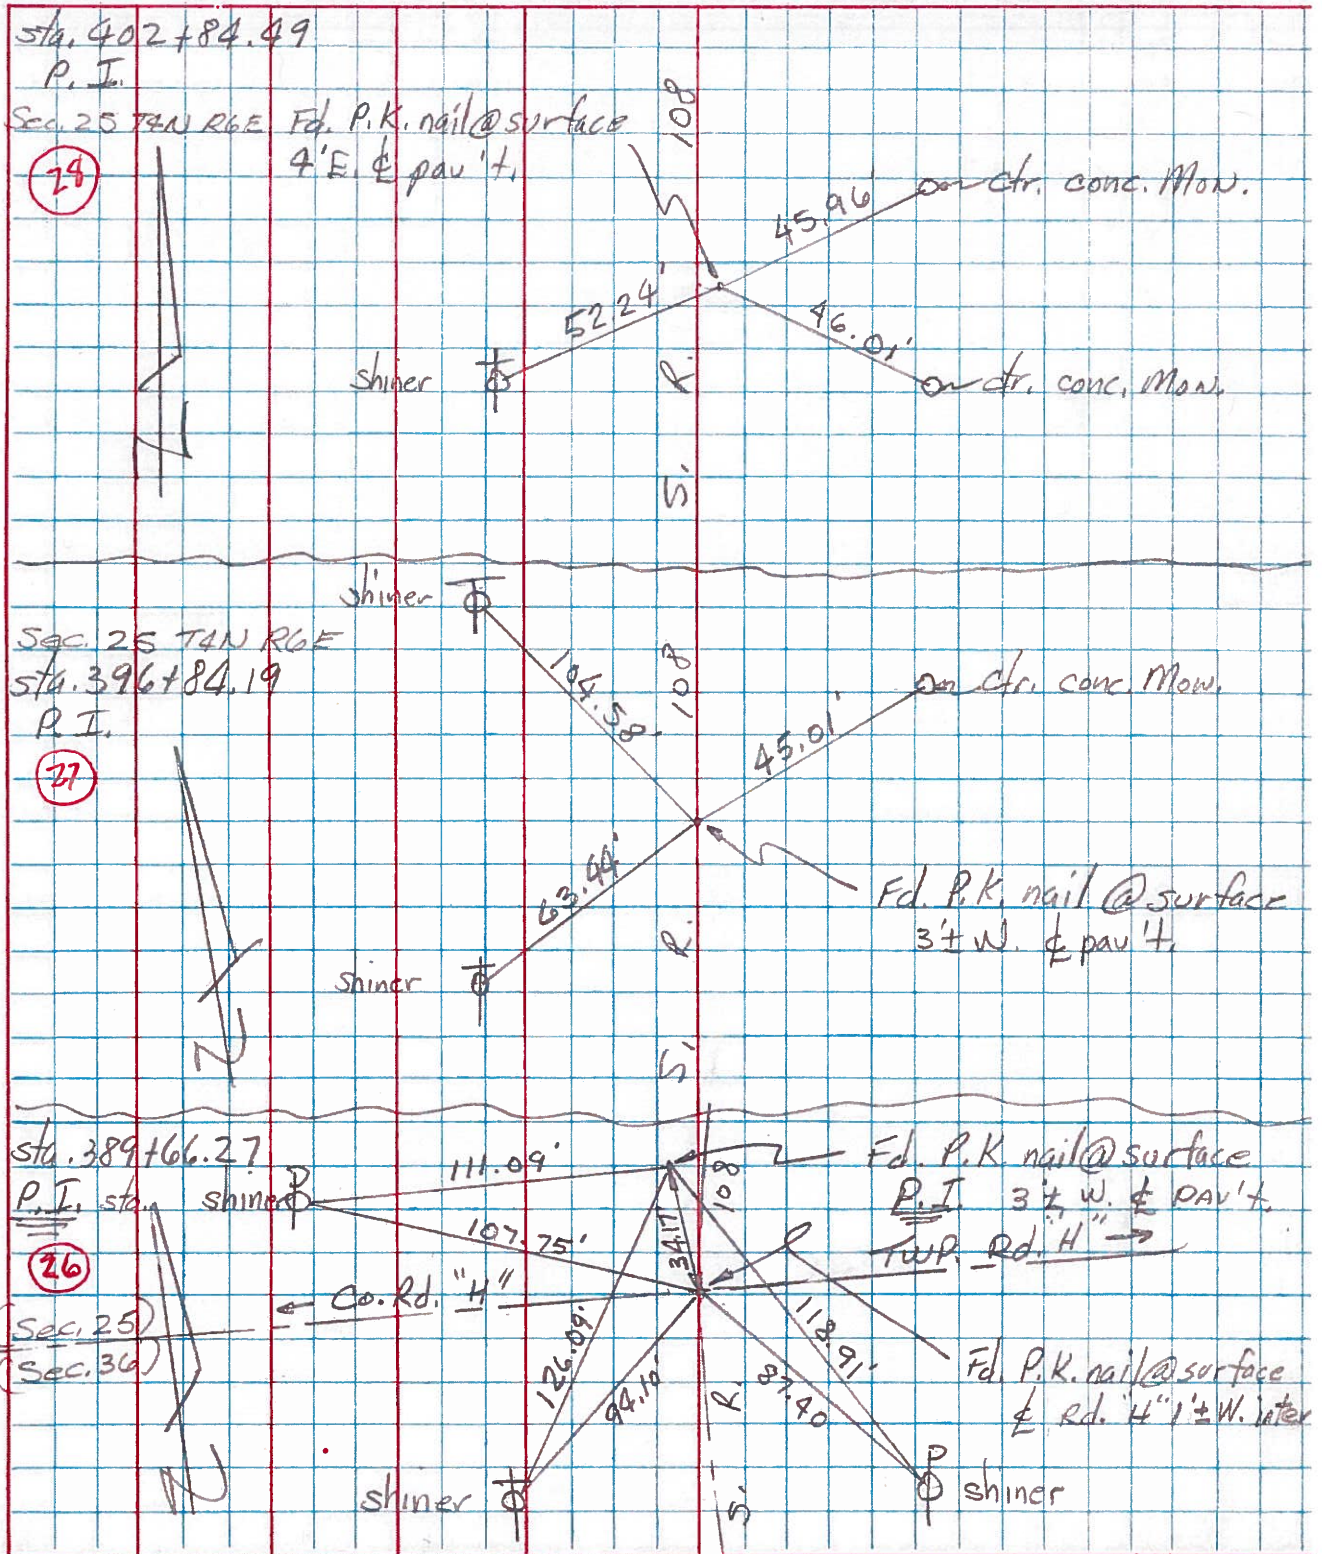 sta. 402+84.49
P. I.
Sec. 25 T4N R6E
28
Fd. P.K. nail @ surface
4' E. ℄ pav't.
108
45.96'
ctr. conc. Mon.
52.24'
46.01'
shiner
ctr. conc. Mon.
R.
S.
N
shiner
Sec. 25 T4N R6E
sta. 396+84.19
P. I.
27
104.58'
108
45.01'
ctr. conc. Mon.
63.44'
Fd. P.K. nail @ surface
3'± W. ℄ pav't.
shiner
R.
S.
N
sta. 389+66.27
P.I. sta.
26
shiner
P
111.09'
107.75'
34.17
108
Fd. P.K. nail @ surface
P.I. 3'± W. ℄ PAV'T.
TWP. Rd. "H" →
← Co. Rd. "H"
(Sec. 25)
(Sec. 36)
126.09'
94.10'
118.91'
87.40
R.
Fd. P.K. nail @ surface
℄ Rd. "H" 1'± W. inter
N
shiner
S.
P
shiner